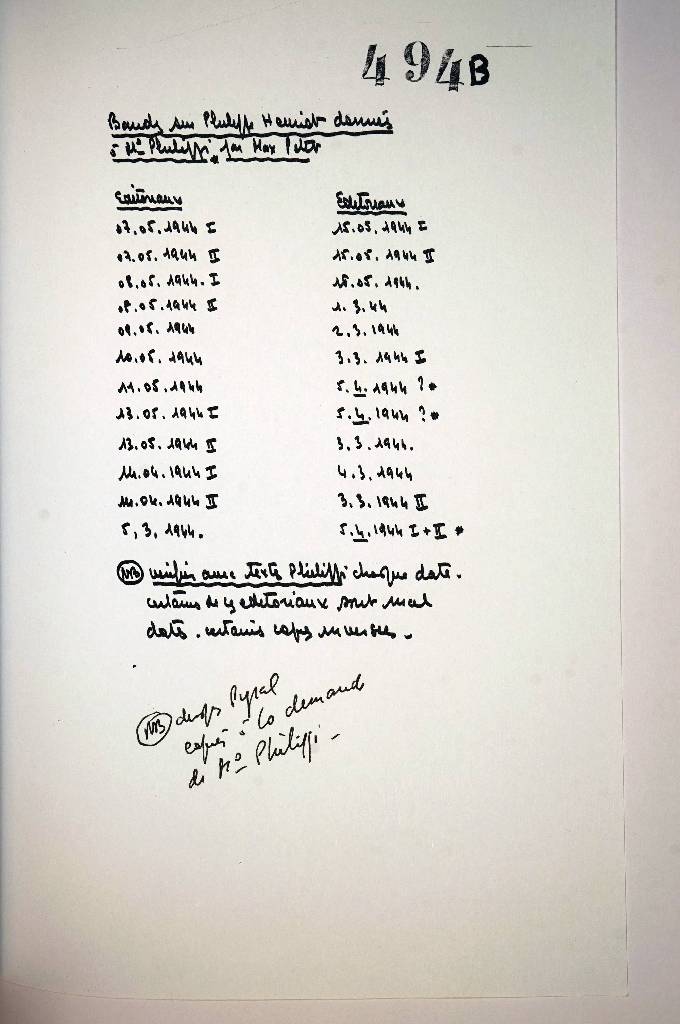 494B
Bande sur Philippe Henriot donnés
à Me Philippi, par Max Petit
Editoriaux
07.05.1944 I
07.05.1944 II
08.05.1944. I
08.05.1944 II
09.05.1944
10.05.1944
11.05.1944
13.05.1944 I
13.05.1944 II
14.04.1944 I
14.04.1944 II
5.3.1944.
Editoriaux
15.05.1944 I
15.05.1944 II
15.05.1944.
1.3.44
2.3.1944
3.3.1944 I
5.4.1944 ?*
5.4.1944 ?*
3.3.1944.
4.3.1944
3.3.1944 II
5.4.1944 I + II *
NB vérifier avec texte Philippi chaque date.
certains de ces editoriaux sont mal
datés. certaines copies inversées.
NB disque Pyral
copiés à la demande
de Me Philippi -